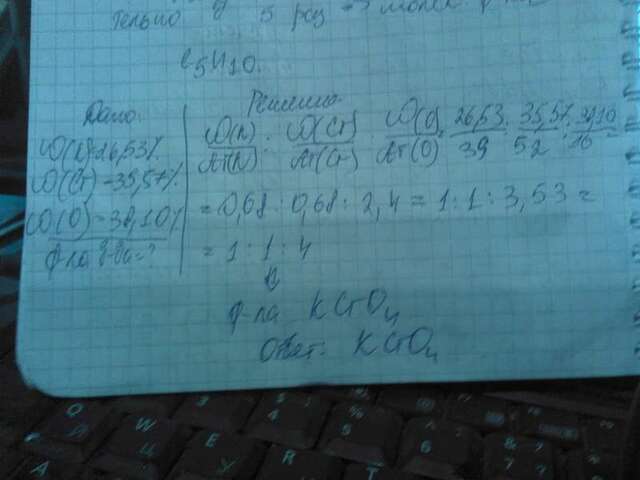 тельно в 5 раз =>
C5H10.
Дано:
ω(K)=26,53%
ω(Cr)=35,37%
ω(O)=38,10%
ф-ла в-ва=?
Решение
ω(K)/Ar(K) : ω(Cr)/Ar(Cr) : ω(O)/Ar(O) = 26,53/39 : 35,37/52 : 38,10/16 =
= 0,68 : 0,68 : 2,4 = 1 : 1 : 3,53 =
= 1 : 1 : 4
ф-ла KCrO4
Ответ: KCrO4
Q
W Ц
E У
R
T
A
3
4
5 %
6
7